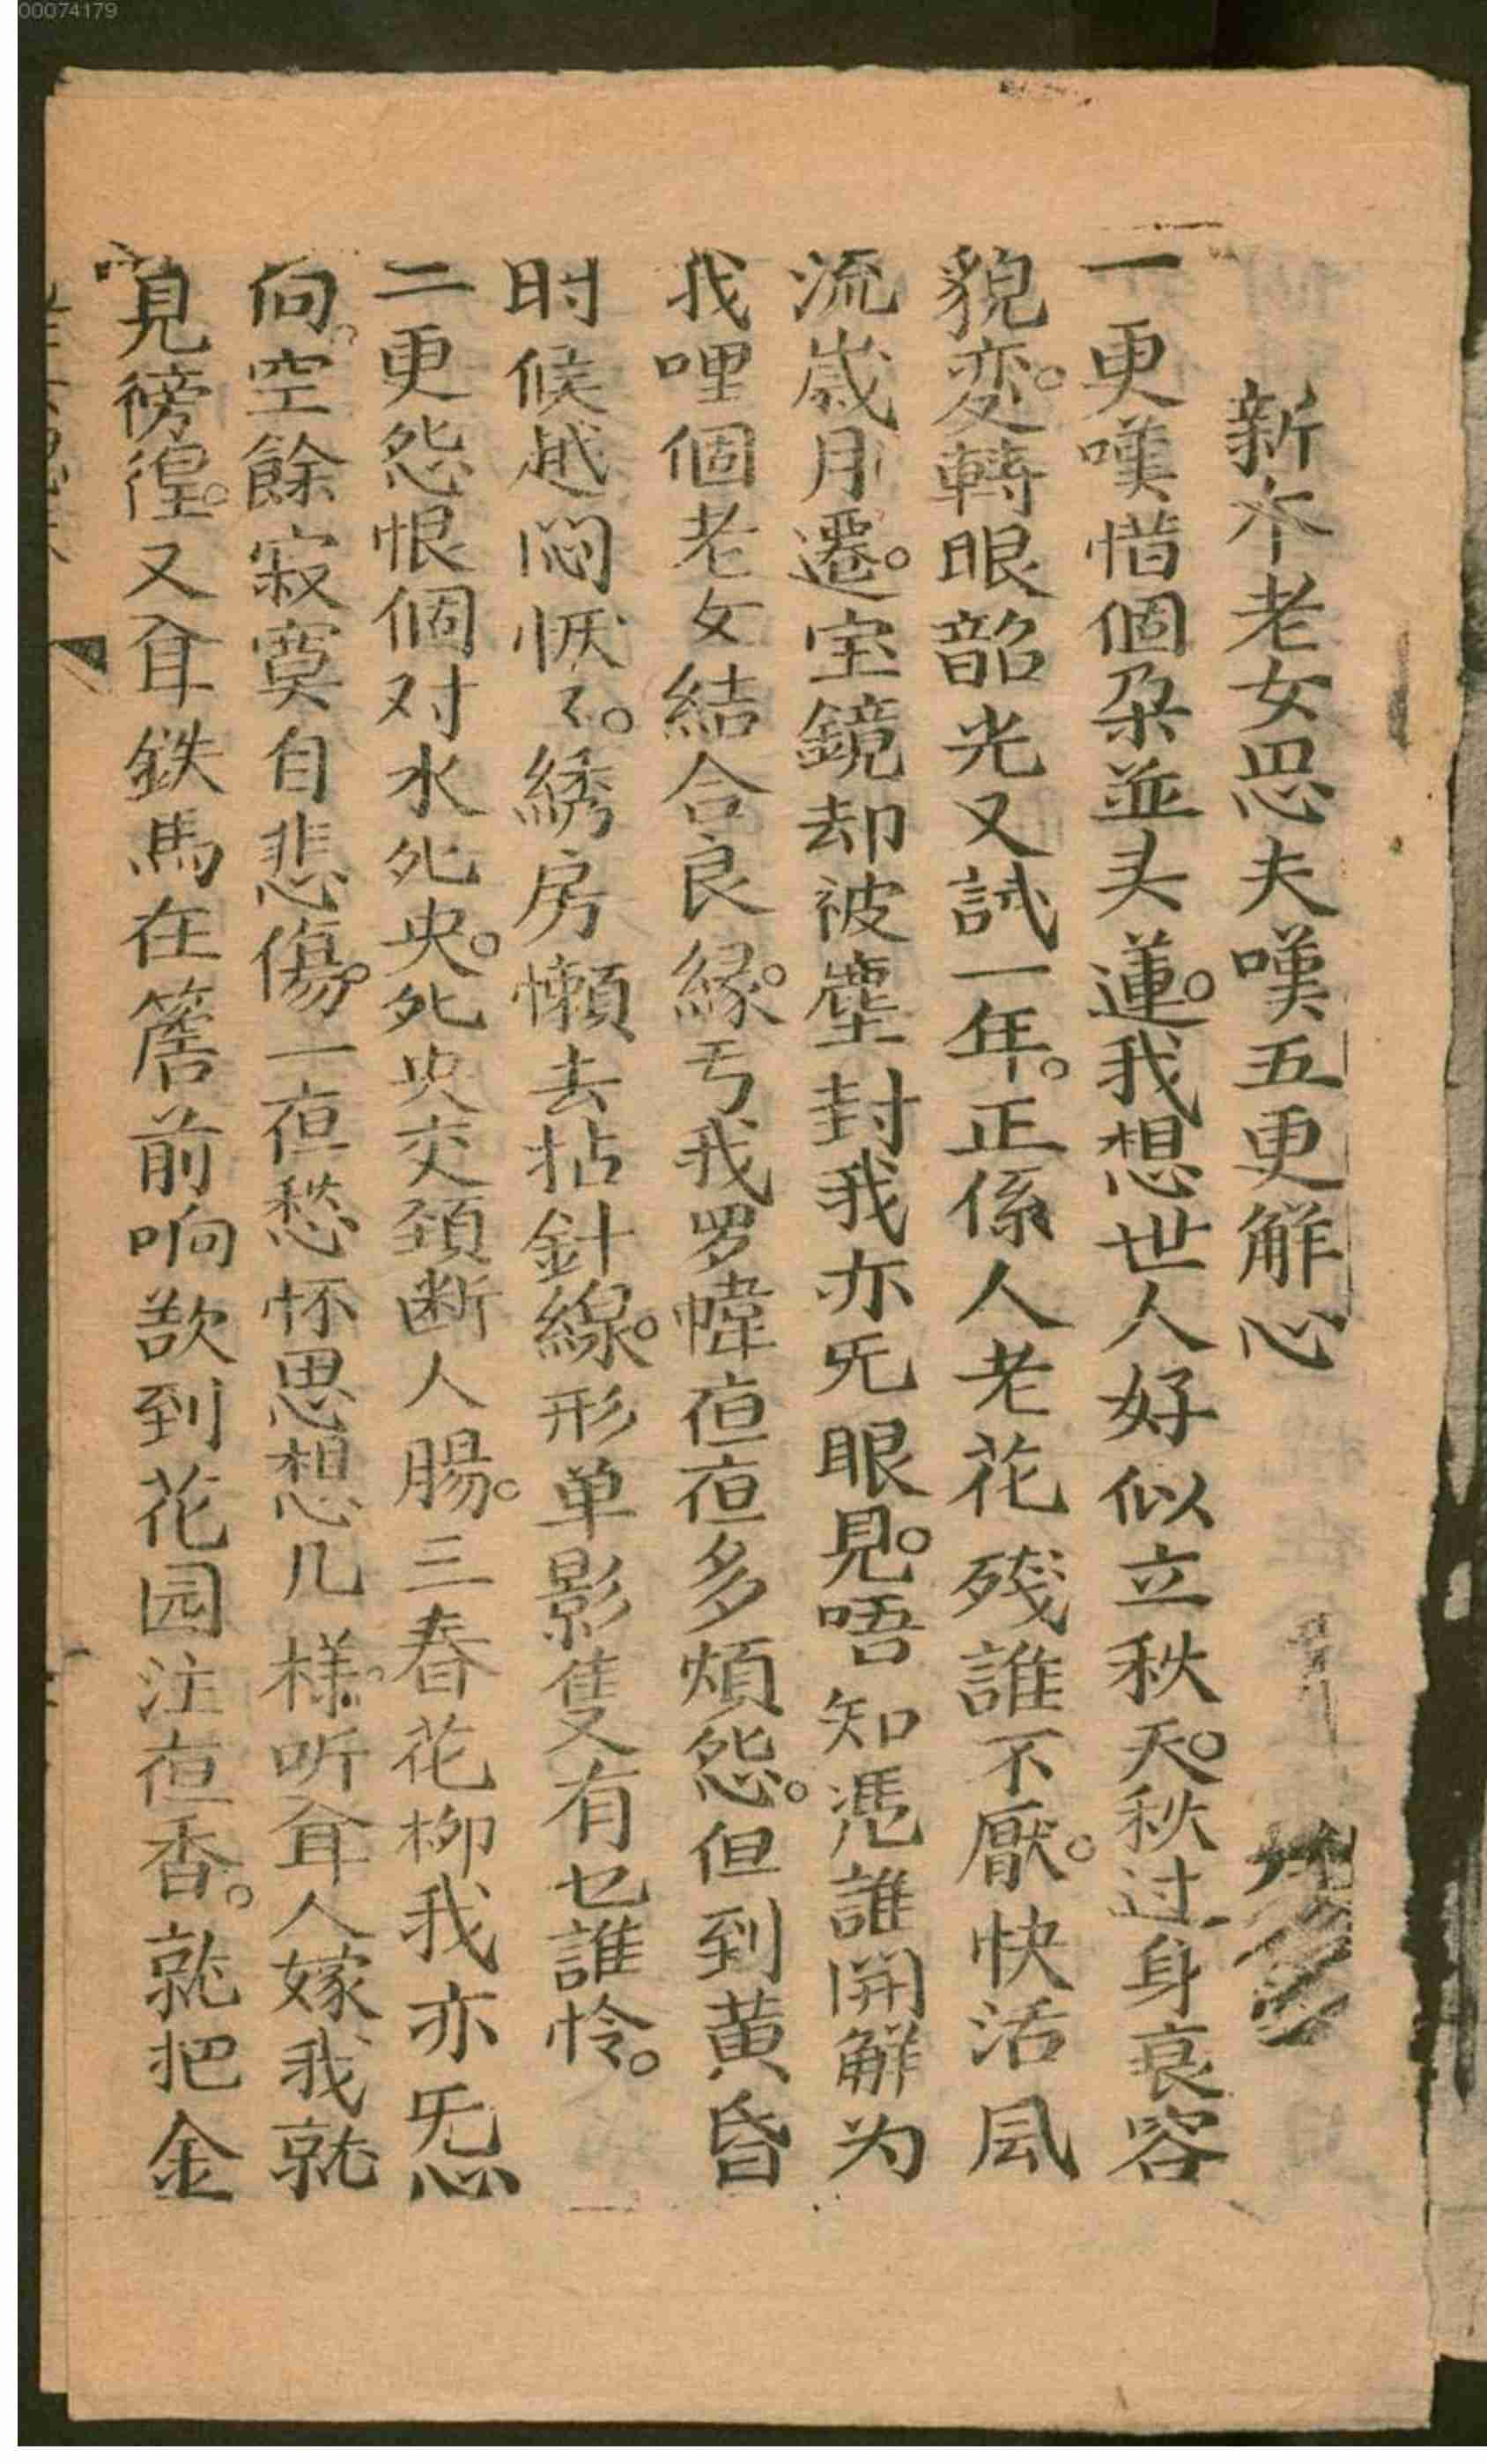 00074179
新本老女思夫嘆五更解心
一更嘆惜個朶並头蓮。我想世人好似立秋天。秋过一身衰容
貌変。轉眼韶光又試一年。正係人老花残誰不厭。快活風
流歲月遷。宝鏡却被塵封我亦旡眼見。唔知憑誰開解为
我哩個老女結合良縁。亏我罗幃夜夜多煩怨。但到黄昏
时候越悶恹々。綉房懒去拈針線。形单影隻又有乜誰怜。
二更怨恨個对水夗央。夗央交頚断人腸。三春花柳我亦旡心
向。空餘寂寞自悲傷。一夜愁怀思想几樣。听耳人嫁我就
見徬徨。又耳鉄馬在簷前响。欲到花园注夜香。就把金